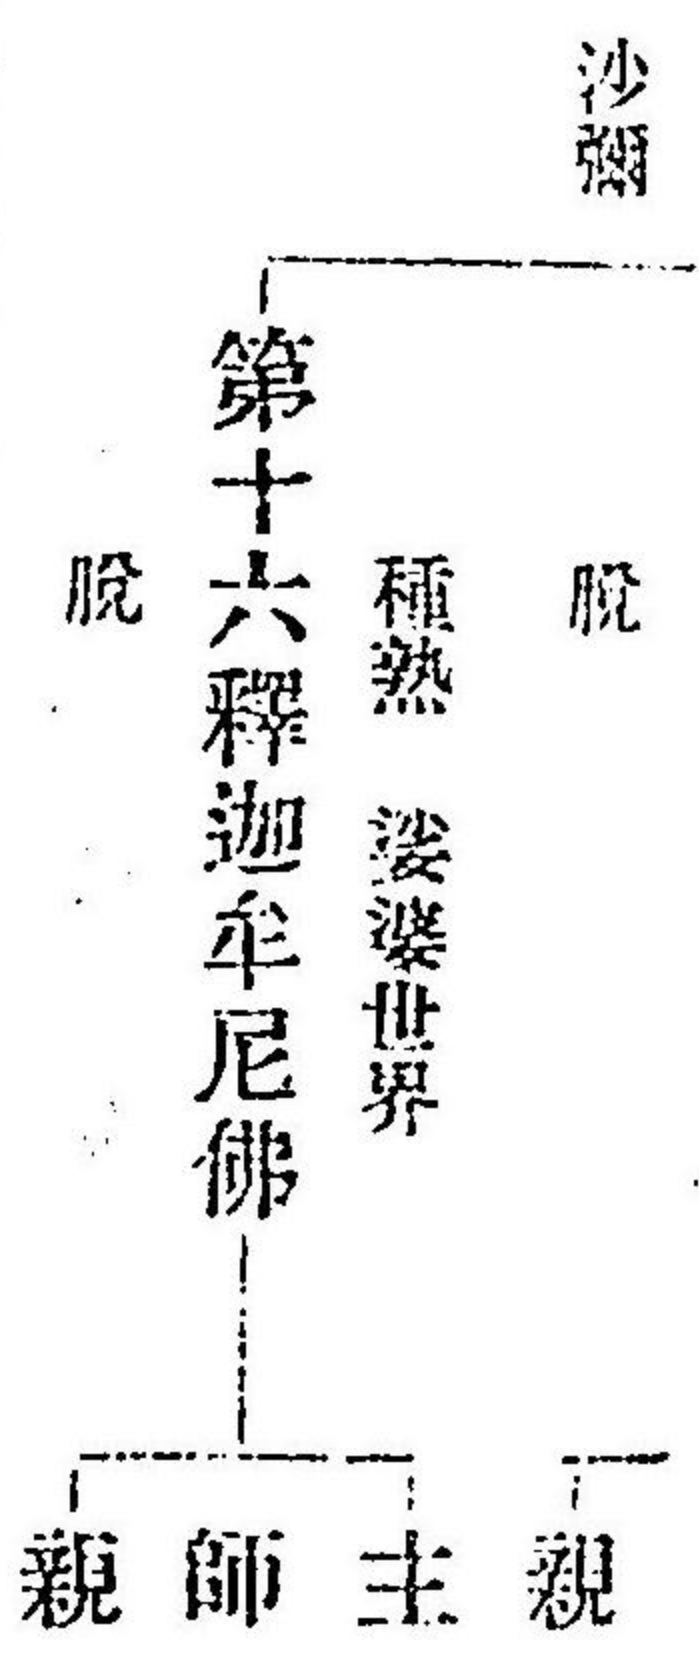 沙彌
脫
親
種熟　娑婆世界
第十六釋迦牟尼佛
脫
主
師
親